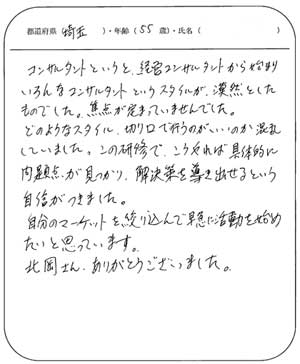 都道府県 (埼玉)・年齢 (55 歳)・氏名 ( )
コンサルタントというと、経営コンサルタントから始まり
いろんなコンサルタントというスタイルが、漠然とした
ものでした。焦点が定まっていませんでした。
どのようなスタイル、切り口で行うのがいいのか混乱
していました。この研修で、こうやれば具体的に
問題点が見つかり、解決策を導き出せるという
自信がつきました。
自分のマーケットを絞り込んで早急に活動を始め
たいと思っています。
北岡さん、ありがとうございました。